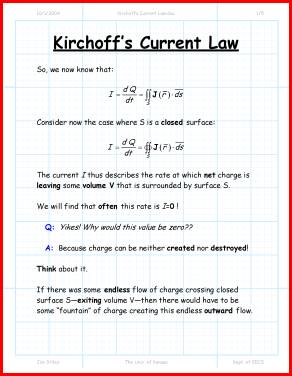 10/2/2004 Kirchoffs Current Law.doc 1/5
Kirchoff's Current Law
So, we now know that:
I = dQ/dt = ∬_S J(r̄) · d̄s̄
Consider now the case where S is a closed surface:
I = dQ/dt = ∯_S J(r̄) · d̄s̄
The current I thus describes the rate at which net charge is
leaving some volume V that is surrounded by surface S.
We will find that often this rate is I=0 !
Q: Yikes! Why would this value be zero??
A: Because charge can be neither created nor destroyed!
Think about it.
If there was some endless flow of charge crossing closed
surface S—exiting volume V—then there would have to be
some "fountain" of charge creating this endless outward flow.
Jim Stiles The Univ. of Kansas Dept. of EECS